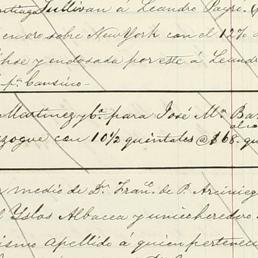 Sullivan á Leandro
enero sobre New York con el 12%
y endosada por este á Leand
p. Cansino
Martinez y Ca. para José Ma. Ba
zogue con 10 1/2 quintales @ $68.
medio de Dn. Franco. de P. Arcinieg
Yslas Albacea y unico heredero
ismo apellido á quien pertenec